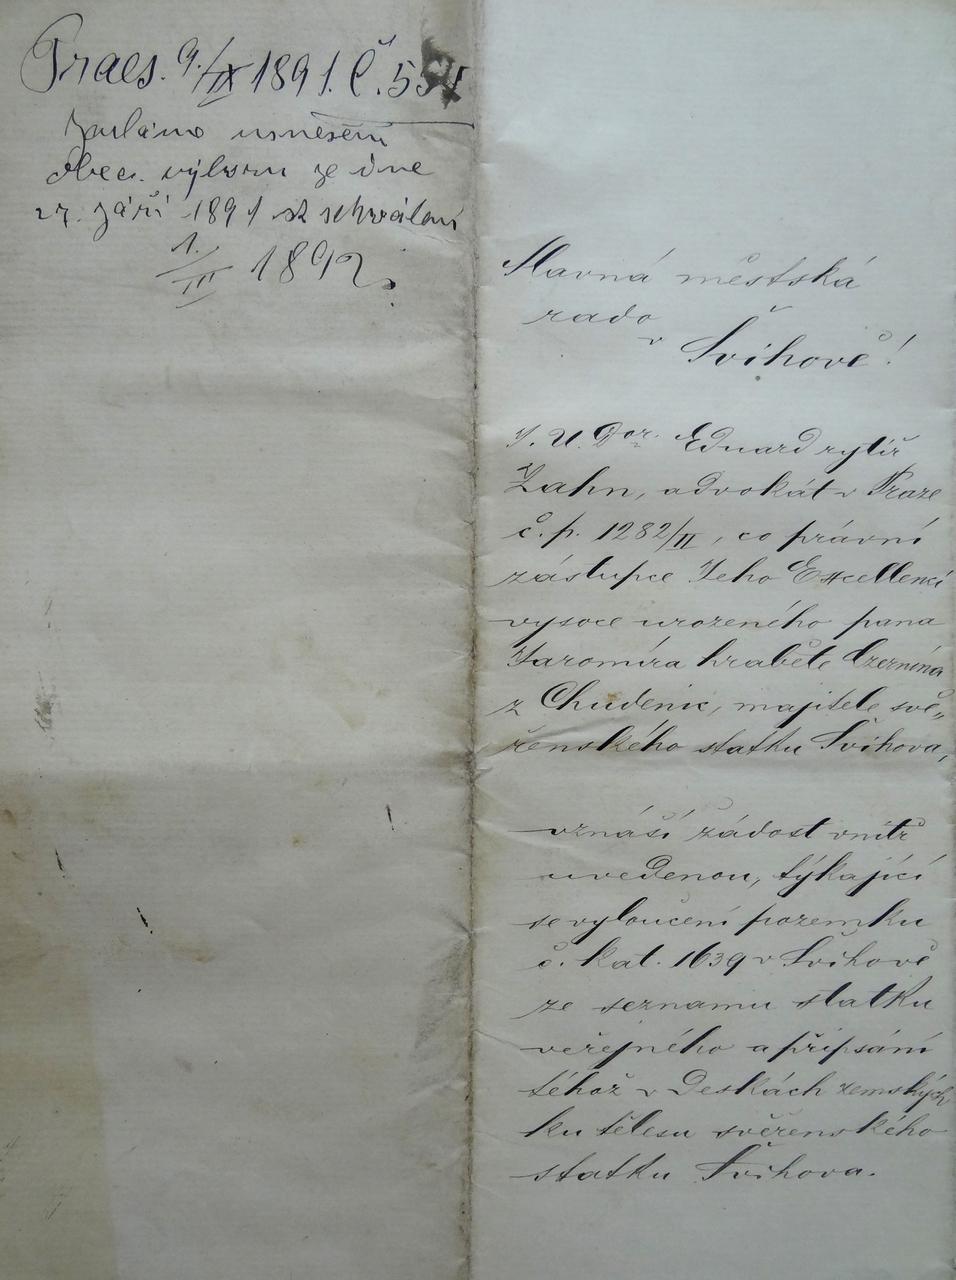 Praes. 9./IX 1891. č. 55
zasláno usnesení
obec. výboru ze dne
27. září 1891 ke schválení
1./III 1892.
Slavná městská
rado
v Švihově!
J. U. Dor. Eduard rytíř
Zahn, advokát v Praze
č. p. 1282/II, co právní
zástupce Jeho Excellencí
vysoce urozeného pana
Jaromíra hraběte Czernína
z Chudenic, majitele svě„
řenského statku Švihova,
vznáší žádost vnitř
uvedenou, týkající
se vyloučení pozemku
č. kat. 1639 v Švihově
ze seznamu statku
veřejného a připsání
téhož v Deskách zemských
ku tělesu svěřenského
statku Švihova.